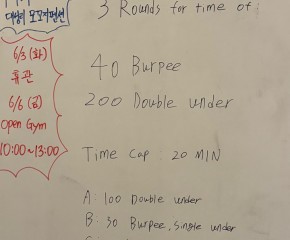 3 Rounds for time of:
6/3 (화)
휴관
6/6 (금)
Open Gym
10:00~13:00
40 Burpee
200 Double under
Time Cap : 20 MIN
A: 100 Double under
B: 30 Burpee, Single under